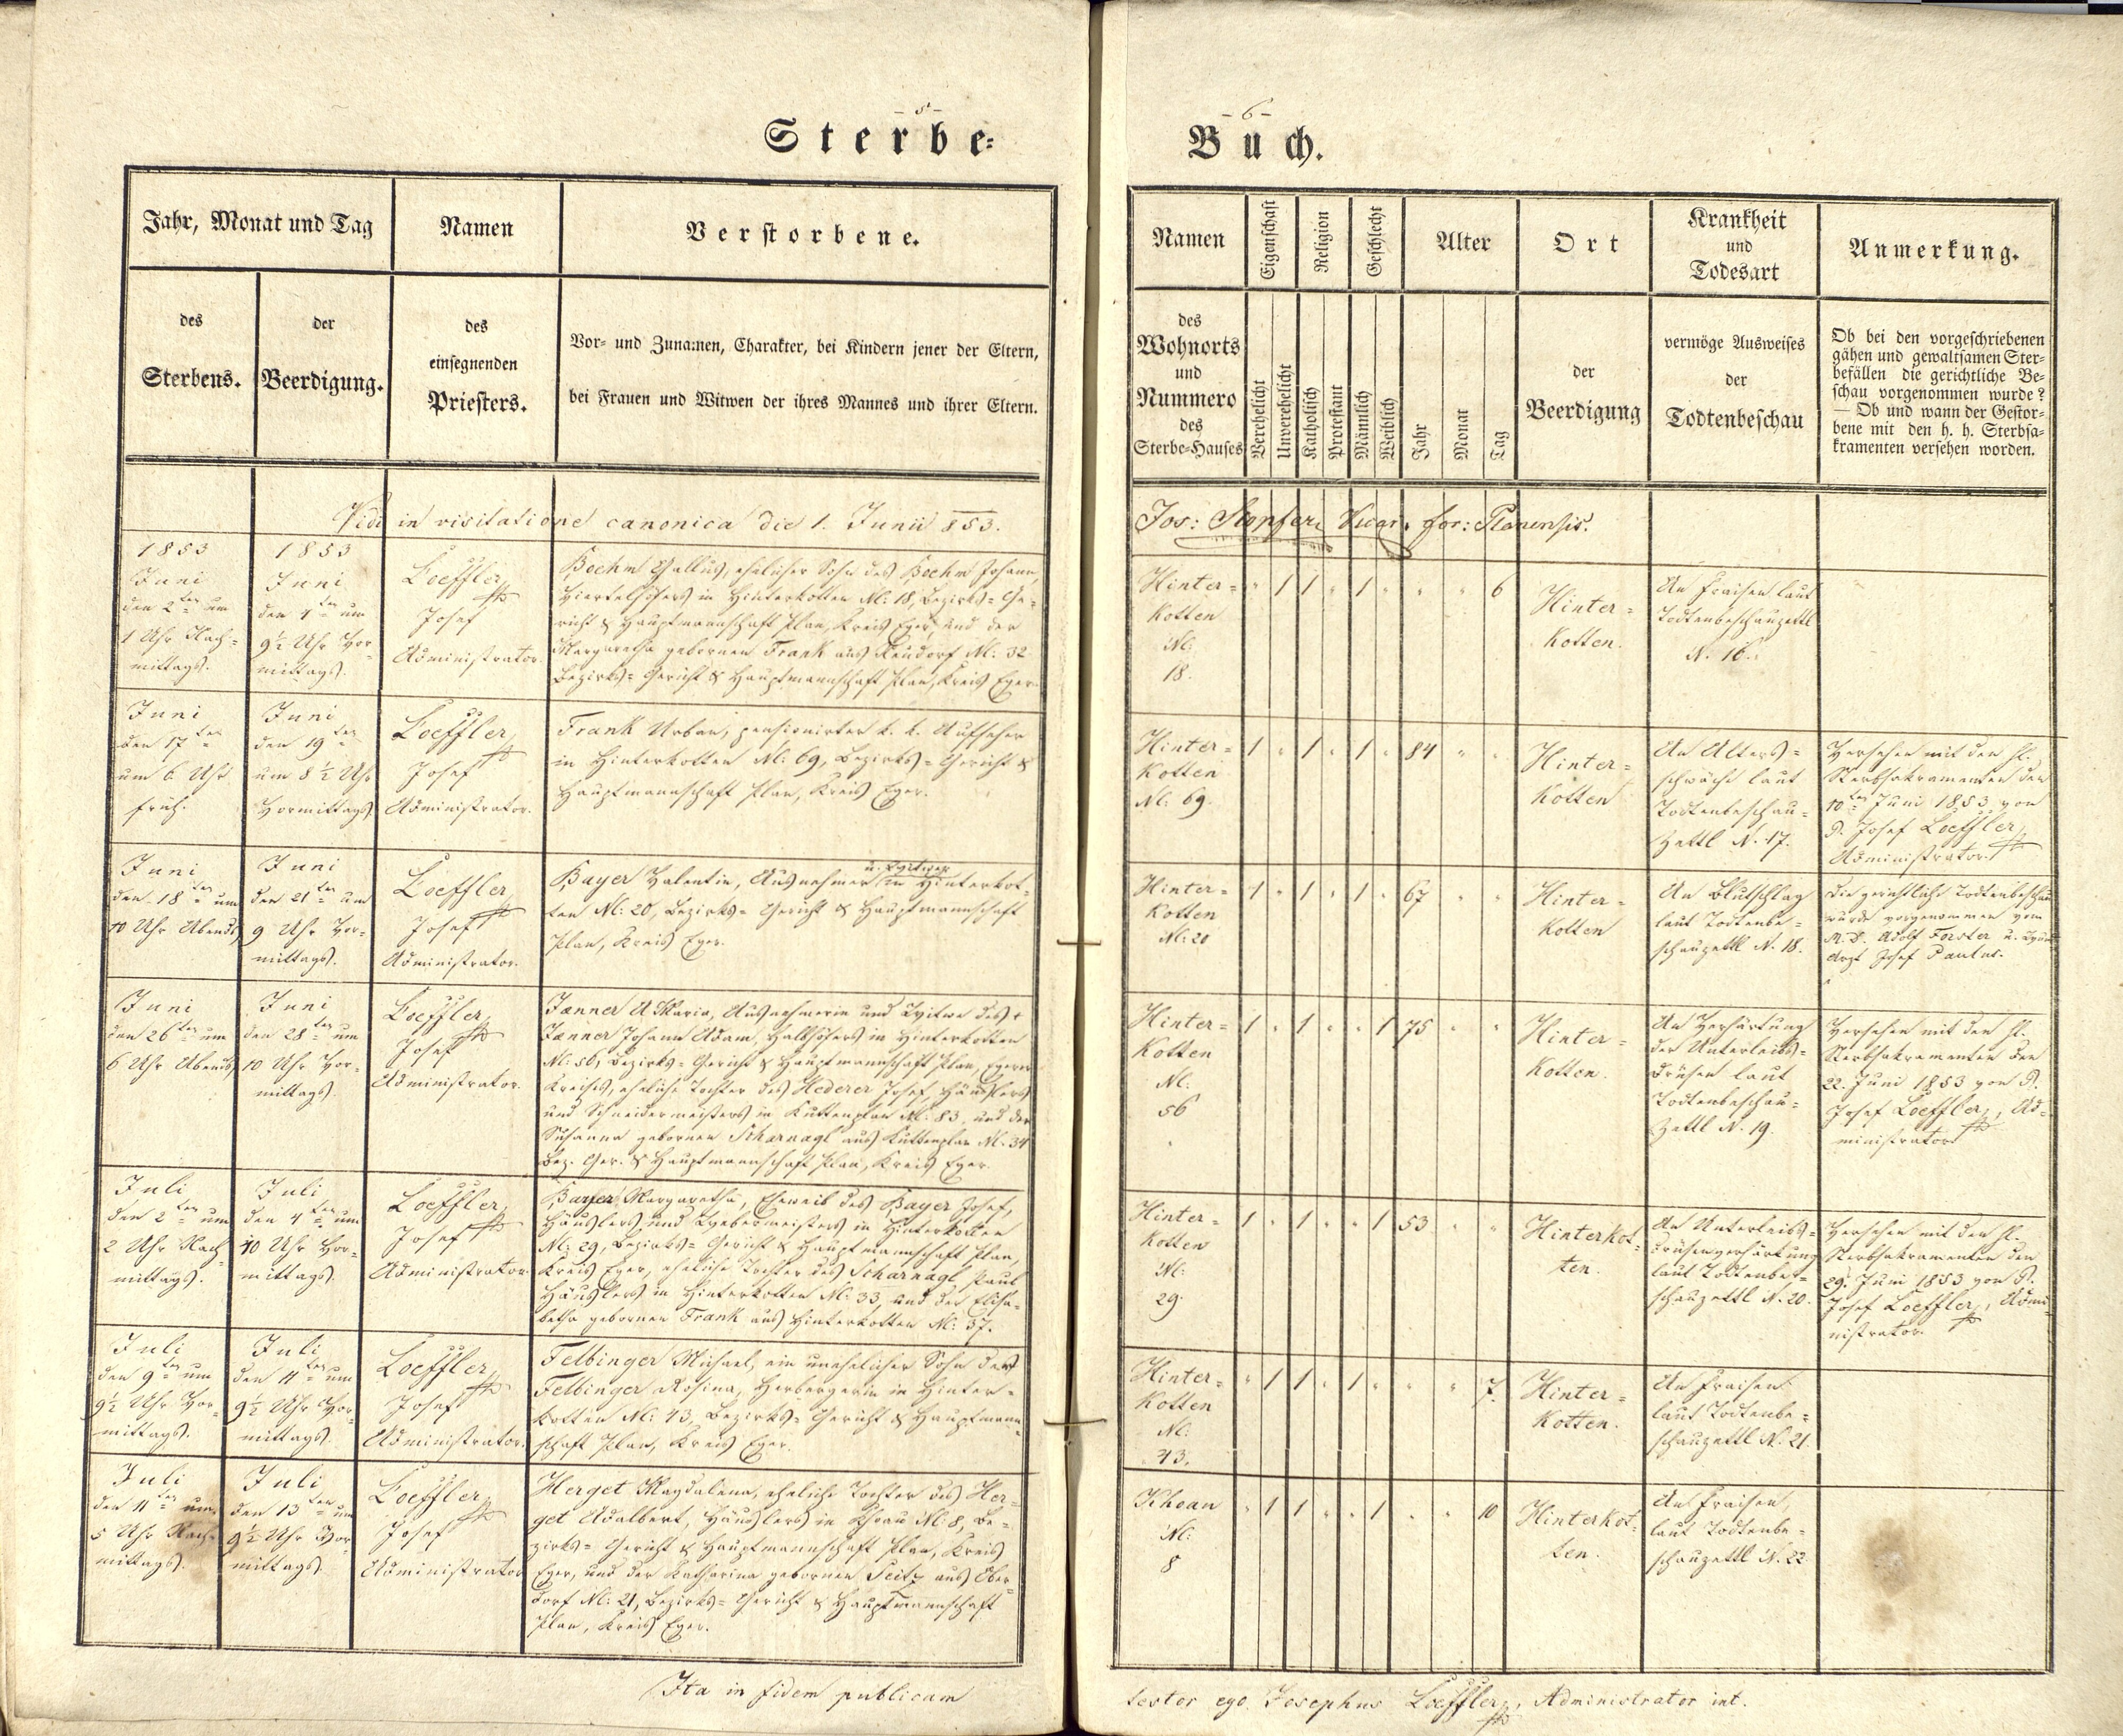 - 5 -
Sterbe=
Jahr, Monat und Tag
Namen
Verstorbene.
des
Sterbens.
der
Beerdigung.
des
einsegnenden
Priesters.
Vor- und Zunamen, Charakter, bei Kindern jener der Eltern,
bei Frauen und Witwen der ihres Mannes und ihrer Eltern.
Vidi in visitatione canonica die 1. Junii 853.
1853
Juni
den 2ten um
1 Uhr Nach=
mittags.
1853
Juni
den 4ten um
9½ Uhr Vor=
mittags.
Loeffler
Josef
Administrator.
Boehm Gallus, ehelicher Sohn des Boehm Johann,
Viertelhöfers in Hinterkotten N: 18, Bezirks= Ge=
richt & Hauptmannschaft Plan, Kreis Eger, und der
Margaretha gebornen Frank aus Neudorf N: 32
Bezirks= Gericht & Hauptmannschaft Plan, Kreis Eger.
Juni
den 17ten
um 6 Uhr
früh.
Juni
den 19ten
um 8½ Uhr
Vormittags
Loeffler
Josef
Administrator.
Frank Urban, pensionirter k. k. Aufseher
in Hinterkotten N: 69, Bezirks= Gericht &
Hauptmannschaft Plan, Kreis Eger.
Juni
den 18ten um
10 Uhr Abends
Juni
den 21ten um
9 Uhr Vor=
mittags.
Loeffler
Josef
Administrator.
u. Wittwer
Bayer Valentin, Ausnehmer in Hinterkot=
ten N: 20, Bezirks= Gericht & Hauptmannschaft
Plan, Kreis Eger.
Juni
den 26ten um
6 Uhr Abends
Juni
den 28ten um
10 Uhr Vor=
mittags.
Loeffler
Josef
Administrator.
Janner A Maria, Ausnehmerin und Witwe des †
Janner Johann Adam, Halbhöfers in Hinterkotten
N: 56, Bezirks= Gericht & Hauptmannschaft Plan, Egerer
Kreises, eheliche Tochter des Hederer Josef, Häuslers
und Schneidermeisters in Kuttenplan N: 83, und der
Susanna gebornen Scharnagl aus Kuttenplan N: 34
Bez. Ger. & Hauptmannschaft Plan, Kreis Eger.
Juli
den 2ten um
2 Uhr Nach
mittags.
Juli
den 4ten um
10 Uhr Vor=
mittags.
Loeffler
Josef
Administrator.
Bayer Margaretha, Eheweib des Bayer Josef,
Häuslers und Webermeisters in Hinterkotten
N: 29, Bezirks= Gericht & Hauptmannschaft Plan,
Kreis Eger, eheliche Tochter des Scharnagl Paul
Häuslers in Hinterkotten N: 33, und der Elisa=
betha gebornen Frank aus Hinterkotten N: 37.
Juli
den 9ten um
9½ Uhr Vor=
mittags.
Juli
den 11ten um
9½ Uhr Vor=
mittags.
Loeffler
Josef
Administrator.
Felbinger Michael, ein unehelicher Sohn der
Felbinger Rosina, Herbergerin in Hinter=
kotten N: 43, Bezirks= Gericht & Hauptmann=
schaft Plan, Kreis Eger.
Juli
den 11ten um
5 Uhr Nach=
mittags.
Juli
den 13ten um
9½ Uhr Vor=
mittags.
Loeffler
Josef
Administrator
Herget Magdalena, eheliche Tochter des Her=
get Adalbert, Häuslers in Khoau N: 8, Be=
zirks= Gericht & Hauptmannschaft Plan, Kreis
Eger, und der Katharina gebornen Seitz aus Ober=
dorf N: 21, Bezirks= Gericht & Hauptmannschaft
Plan, Kreis Eger.
Ita in fidem publicam
- 6 -
Buch.
Namen
Eigenschaft
Religion
Geschlecht
Alter
Ort
Krankheit
und
Todesart
Anmerkung.
des
Wohnorts
und
Nummero
des
Sterbe-Hauses
Verehelicht
Unverehelicht
Katholisch
Protestant
Männlich
Weiblich
Jahr
Monat
Tag
der
Beerdigung
vermöge Ausweises
der
Todtenbeschau
Ob bei den vorgeschriebenen
gähen und gewaltsamen Ster-
befällen die gerichtliche Be-
schau vorgenommen wurde?
— Ob und wann der Gestor-
bene mit den h. h. Sterbsa-
kramenten versehen worden.
Jos: Vicar. for: Planensis.
Hinter=
kotten
N:
18.
" 1 1 " 1 " " " 6
Hinter=
kotten.
An Fraisen laut
Todtenbeschauzettl
N. 16.
Hinter=
kotten
N: 69.
1 " 1 " 1 " 84 " "
Hinter=
kotten
An Alters=
schwäche laut
Todtenbeschau=
zettl N. 17.
Versehen mit den hl.
Sterbsakramenten den
10ten Juni 1853 von
P. Josef Loeffler,
Administrator.
Hinter=
kotten
N: 20
1 " 1 " 1 " 67 " "
Hinter=
kotten
An Blutschlag
laut Todtenbe=
schauzettl N. 18.
Die gerichtliche Todtenbeschau
wurde vorgenommen vom
M. D. Adolf Forster u. Wund
Arzt Josef Paulus.
Hinter=
kotten
N:
56
1 " 1 " " 1 75 " "
Hinter=
kotten.
An Verhärtung
der Unterleibs=
drüsen laut
Todtenbeschau=
zettl N. 19.
Versehen mit den hl.
Sterbsakramenten den
22. Juni 1853 von P.
Josef Loeffler, Ad=
ministrator
Hinter=
kotten
N:
29.
1 " 1 " " 1 53 " "
Hinterkot=
ten.
An Unterleibs=
drüsenverhärtung
laut Todtenbe=
schauzettl N. 20.
Versehen mit den hl.
Sterbsakramenten den
29. Juni 1853 von P.
Josef Loeffler, Admi=
nistrator.
Hinter=
kotten
N:
43.
" 1 1 " 1 " " " 7.
Hinter=
kotten.
An Fraisen
laut Todtenbe=
schauzettl N. 21
Khoau
N:
8
" 1 1 " " 1 " " 10
Hinterkot=
ten.
An Fraisen,
laut Todtenbe=
schauzettl N. 22
testor ego Josephus Loeffler, Administrator int.